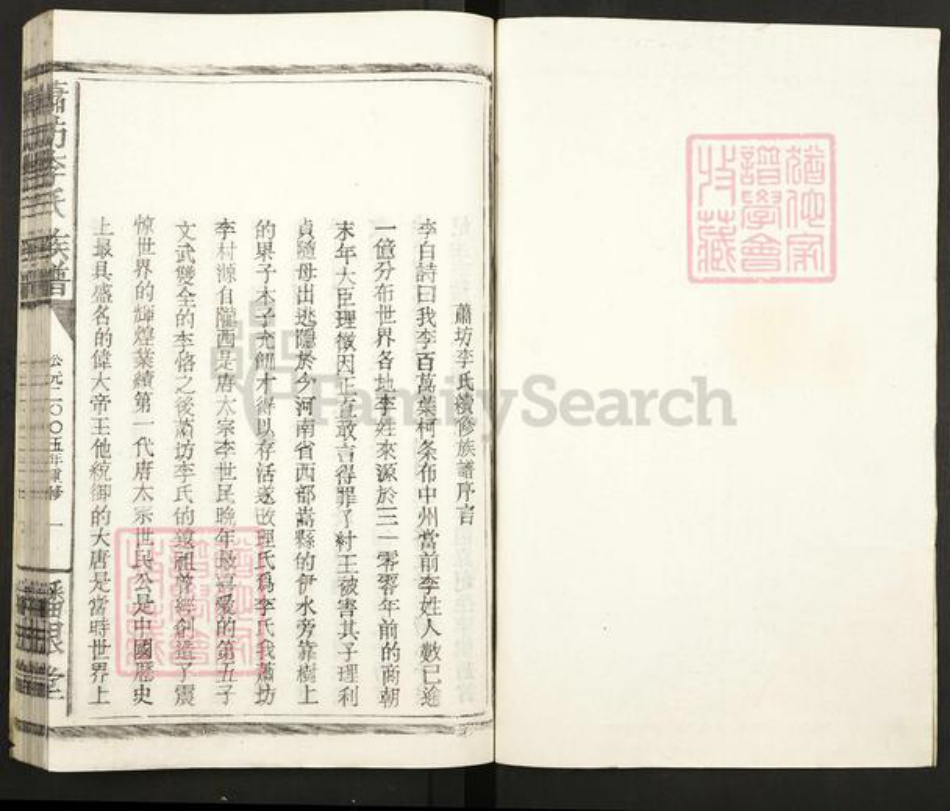 蕭坊李氏續修族譜序言
李白詩曰我李百萬葉柯条布中州當前李姓人數已逾
一億分布世界各地李姓來源於三一零零年前的商朝
末年大臣理徵因正直敢言得罪了紂王被害其子理利
貞隨母出逃隱於今河南省西部嵩縣的伊水旁靠樹上
的果子木子充饑才得以存活遂改理氏爲李氏我蕭坊
李村源自隴西是唐太宗李世民晚年最喜愛的第五子
文武雙全的李恪之後蕭坊李氏的遠祖曾經創造了震
惊世界的輝煌業績第一代唐太宗世民公是中國歷史
上最具盛名的偉大帝王他統御的大唐是當時世界上
蕭坊李氏族譜
公元二〇〇五年重修
一
蟠根堂
譜學會
收藏
FamilySearch